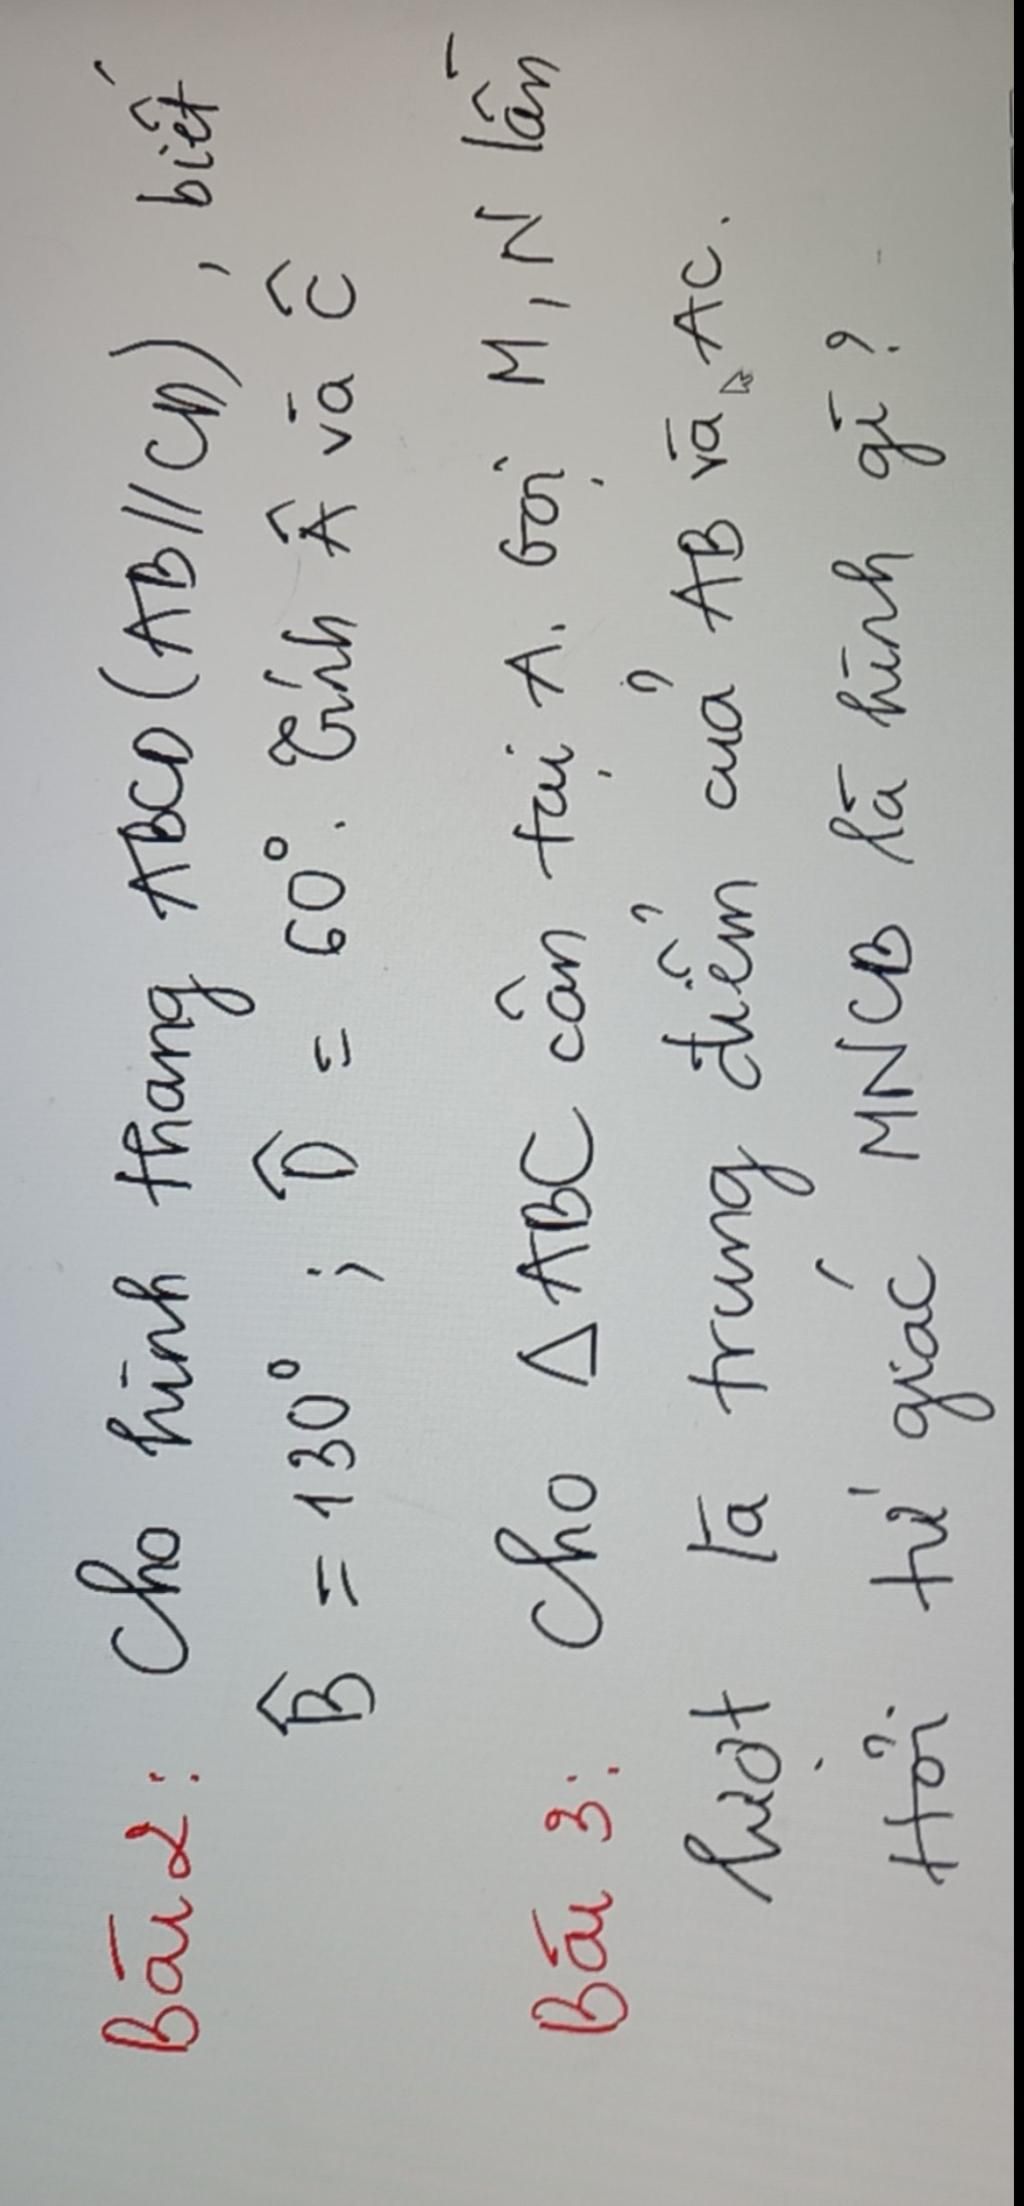 Bài 2: Cho hình thang ABCD (AB // CD), biết
B̂ = 130° ; D̂ = 60°. Tính Â và Ĉ
Bài 3: Cho △ABC cân tại A. Gọi M, N lần
lượt là trung điểm của AB và AC.
Hỏi tứ giác MNCB là hình gì?